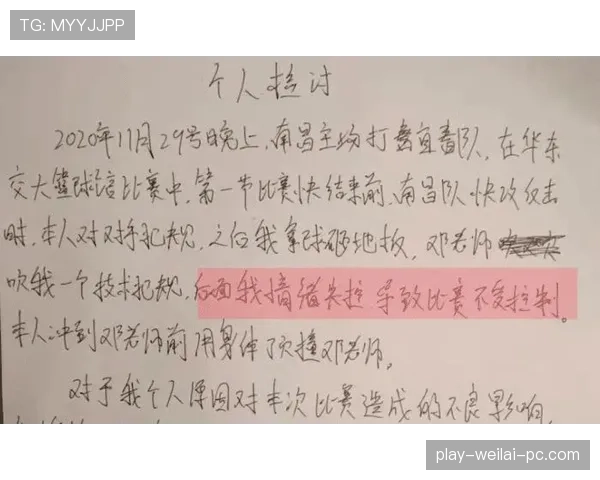 TG: MYYJJPP
个人检讨
2020年11月29号晚上,南昌主场打宜春队,在华东
交大篮球馆比赛中,第一节比赛快结束前,南昌队快攻反击
时,本人对对手犯规,之后我拿球砸地板,邓老师
吹我一个技术犯规,后面我情绪失控导致比赛不受控制。
本人冲到邓老师前用身体顶撞邓老师。
对于我个人原因对本次比赛造成的不良影响,
play-weilai-pc.com